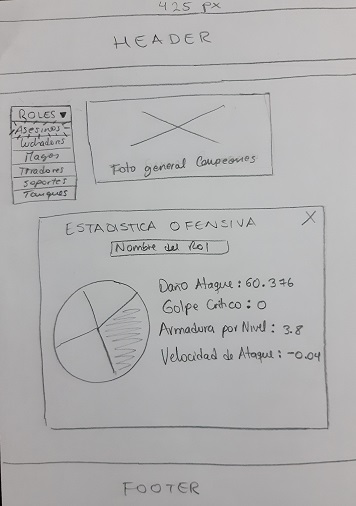 425 px
HEADER
ROLES ▼
Asesinos
Luchadores
Magos
Tiradores
Soportes
Tanques
Foto general Campeones
ESTADISTICA OFENSIVA X
Nombre del Rol
Daño Ataque: 60.376
Golpe Critico: 0
Armadura por Nivel: 3.8
Velocidad de Ataque: -0.04
FOOTER